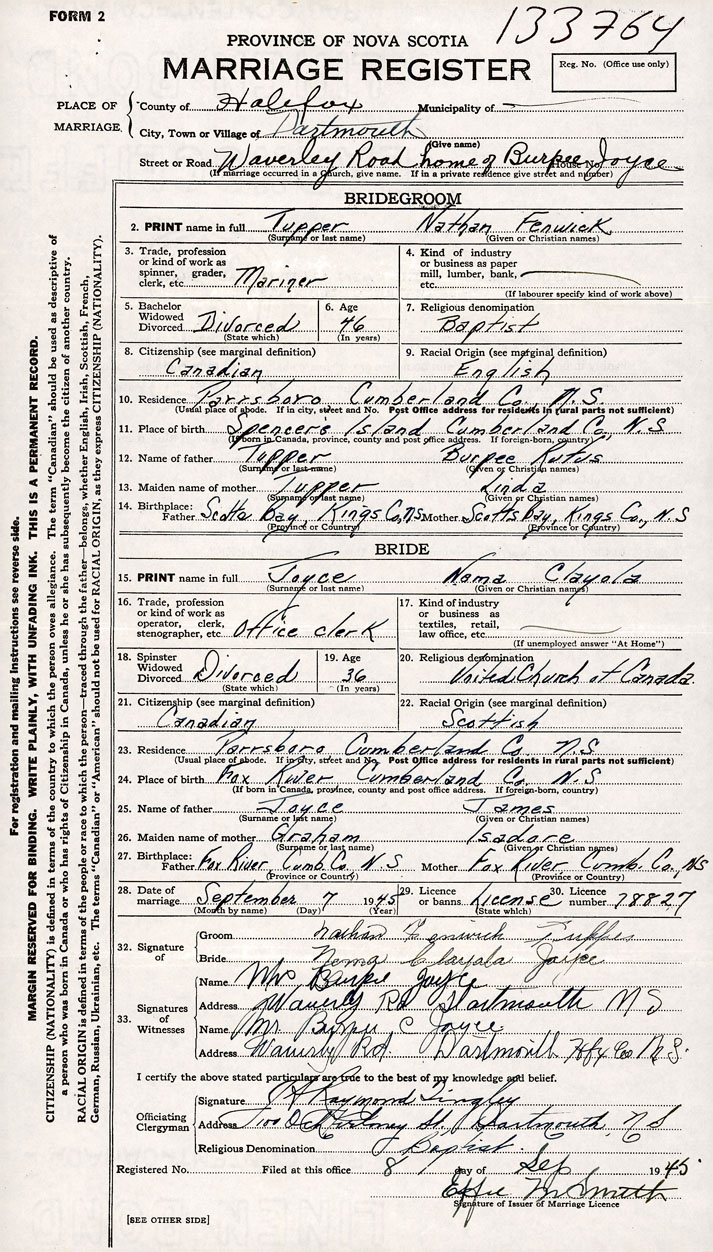 FORM 2
133764
PROVINCE OF NOVA SCOTIA
MARRIAGE REGISTER
Reg. No. (Office use only)
PLACE OF MARRIAGE
County of Halifax Municipality of —
City, Town or Village of Dartmouth
(Give name)
Street or Road Waverley Road home of Burpee Joyce House No.
(If marriage occurred in a Church, give name. If in a private residence give street and number)
BRIDEGROOM
2. PRINT name in full Tupper Nathan Fenwick
(Surname or last name) (Given or Christian names)
3. Trade, profession or kind of work as spinner, grader, clerk, etc. Mariner
4. Kind of industry or business as paper mill, lumber, bank, etc.
(If labourer specify kind of work above)
5. Bachelor Widowed Divorced Divorced
(State which)
6. Age 46
(In years)
7. Religious denomination
Baptist
8. Citizenship (see marginal definition)
Canadian
9. Racial Origin (see marginal definition)
English
10. Residence Parrsboro Cumberland Co. N.S.
(Usual place of abode. If in city, street and No. Post Office address for residents in rural parts not sufficient)
11. Place of birth Spencer's Island Cumberland Co, N.S
(If born in Canada, province, county and post office address. If foreign-born, country)
12. Name of father Tupper Burpee Rufus
(Surname or last name) (Given or Christian names)
13. Maiden name of mother Tupper Linda
(Surname or last name) (Given or Christian names)
14. Birthplace: Father Scotts Bay, Kings Co, NS Mother Scotts Bay, Kings Co., N.S
(Province or Country) (Province or Country)
BRIDE
15. PRINT name in full Joyce Nama Clayola
(Surname or last name) (Given or Christian names)
16. Trade, profession or kind of work as operator, clerk, stenographer, etc. Office clerk
17. Kind of industry or business as textiles, retail, law office, etc.
(If unemployed answer "At Home")
18. Spinster Widowed Divorced Divorced
(State which)
19. Age 36
(In years)
20. Religious denomination
United Church of Canada.
21. Citizenship (see marginal definition)
Canadian
22. Racial Origin (see marginal definition)
Scottish
23. Residence Parrsboro Cumberland Co N.S
(Usual place of abode. If in city, street and No. Post Office address for residents in rural parts not sufficient)
24. Place of birth Fox River Cumberland Co. N.S
(If born in Canada, province, county and post office address. If foreign-born, country)
25. Name of father Joyce James
(Surname or last name) (Given or Christian names)
26. Maiden name of mother Graham Isadore
(Surname or last name) (Given or Christian names)
27. Birthplace: Father Fox River, Cumb. Co. N S Mother Fox River Cumb. Co., NS
(Province or Country) (Province or Country)
28. Date of marriage September 7 1945
(Month by name) (Day) (Year)
29. Licence or banns License
(State which)
30. Licence number 78827
32. Signature of
Groom Nathan Fenwick Tupper
Bride Noma Clayola Joyce
33. Signatures of Witnesses
Name Mrs Burpee Joyce
Address Waverly Rd Dartmouth N S
Name Mr. C Joyce
Address Waverly Rd. Dartmouth Hfx Co N.S.
I certify the above stated particulars are true to the best of my knowledge and belief.
Officiating Clergyman
Signature Raymond Tingley
Address St., Dartmouth, N S
Religious Denomination Baptist.
Registered No. Filed at this office 8 day of Sep 1945
Effie M Smith
Signature of Issuer of Marriage Licence
[SEE OTHER SIDE]
For registration and mailing instructions see reverse side.
MARGIN RESERVED FOR BINDING. WRITE PLAINLY, WITH UNFADING INK. THIS IS A PERMANENT RECORD.
CITIZENSHIP (NATIONALITY) is defined in terms of the country to which the person owes allegiance. The term "Canadian" should be used as descriptive of
a person who was born in Canada or who has rights of Citizenship in Canada, unless he or she has subsequently become the citizen of another country.
RACIAL ORIGIN is defined in terms of the people or race to which the person—traced through the father—belongs, whether English, Irish, Scottish, French,
German, Russian, Ukrainian, etc. The terms "Canadian" or "American" should not be used for RACIAL ORIGIN, as they express CITIZENSHIP (NATIONALITY).